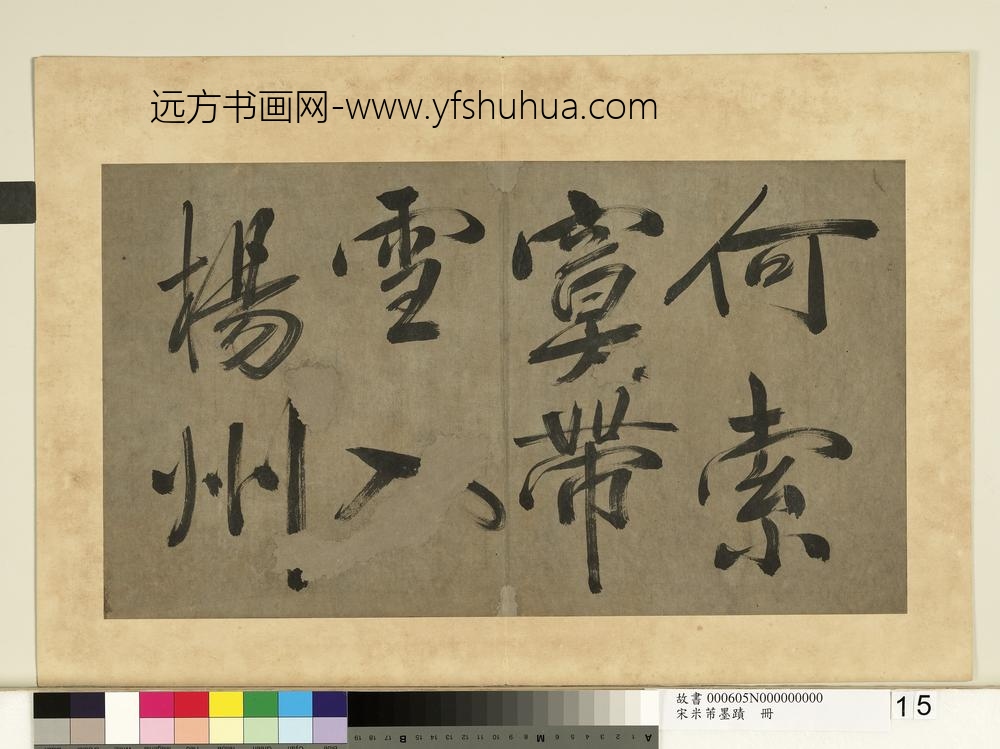 远方书画网-www.yfshuhua.com
何索
寞帶
雪入
揚州
故書 000605N000000000
宋米芾墨蹟 冊
15